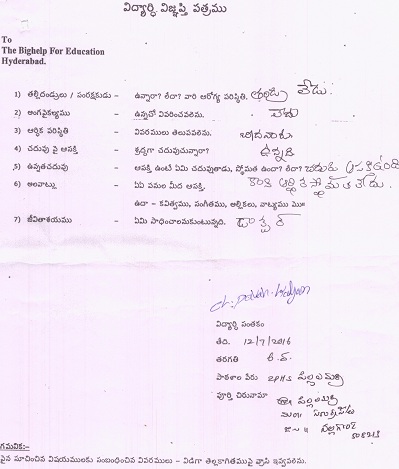 విద్యార్థి విజ్ఞప్తి పత్రము
To
The Bighelp For Education
Hyderabad.
1) తల్లిదండ్రులు / సంరక్షకుడు – ఉన్నారా? లేదా? వారి ఆరోగ్య పరిస్థితి. తండ్రి లేడు.
2) అంగవైకల్యము – ఉన్నచో వివరించవలెను. లేదు
3) ఆర్థిక పరిస్థితి – వివరములు తెలుపవలెను.
4) చదువు పై ఆసక్తి – శ్రద్ధగా చదువుచున్నారా? ఉన్నది
5) ఉన్నతచదువు – ఆసక్తి ఉంటే ఏమి చదువుతాడు, స్థోమత ఉందా? లేదా? చదువు ఆసక్తి ఉంది
6) అలవాట్లు – ఏ పనుల మీద ఆసక్తి. కాని ఆర్థిక స్థోమత లేదు.
ఉదా – కవిత్వము, సంగీతము, అల్లికలు, నాట్యము మొ॥
7) జీవితాశయము – ఏమి సాధించాలనుకుంటున్నది. డాక్టర్
ch. pavan kalyan
విద్యార్థి సంతకం
తేది. 12/7/2016
తరగతి
పాఠశాల పేరు ZPHS పిల్లలమర్రి
పూర్తి చిరునామా గ్రా॥ పిల్లలమర్రి
మం॥ సూర్యాపేట
జి॥ నల్లగొండ
508213
గమనిక:-
పైన సూచించిన విషయములకు సంబంధించిన వివరములు – విడిగా తెల్లకాగితముపై వ్రాసి ఇవ్వవలెను.